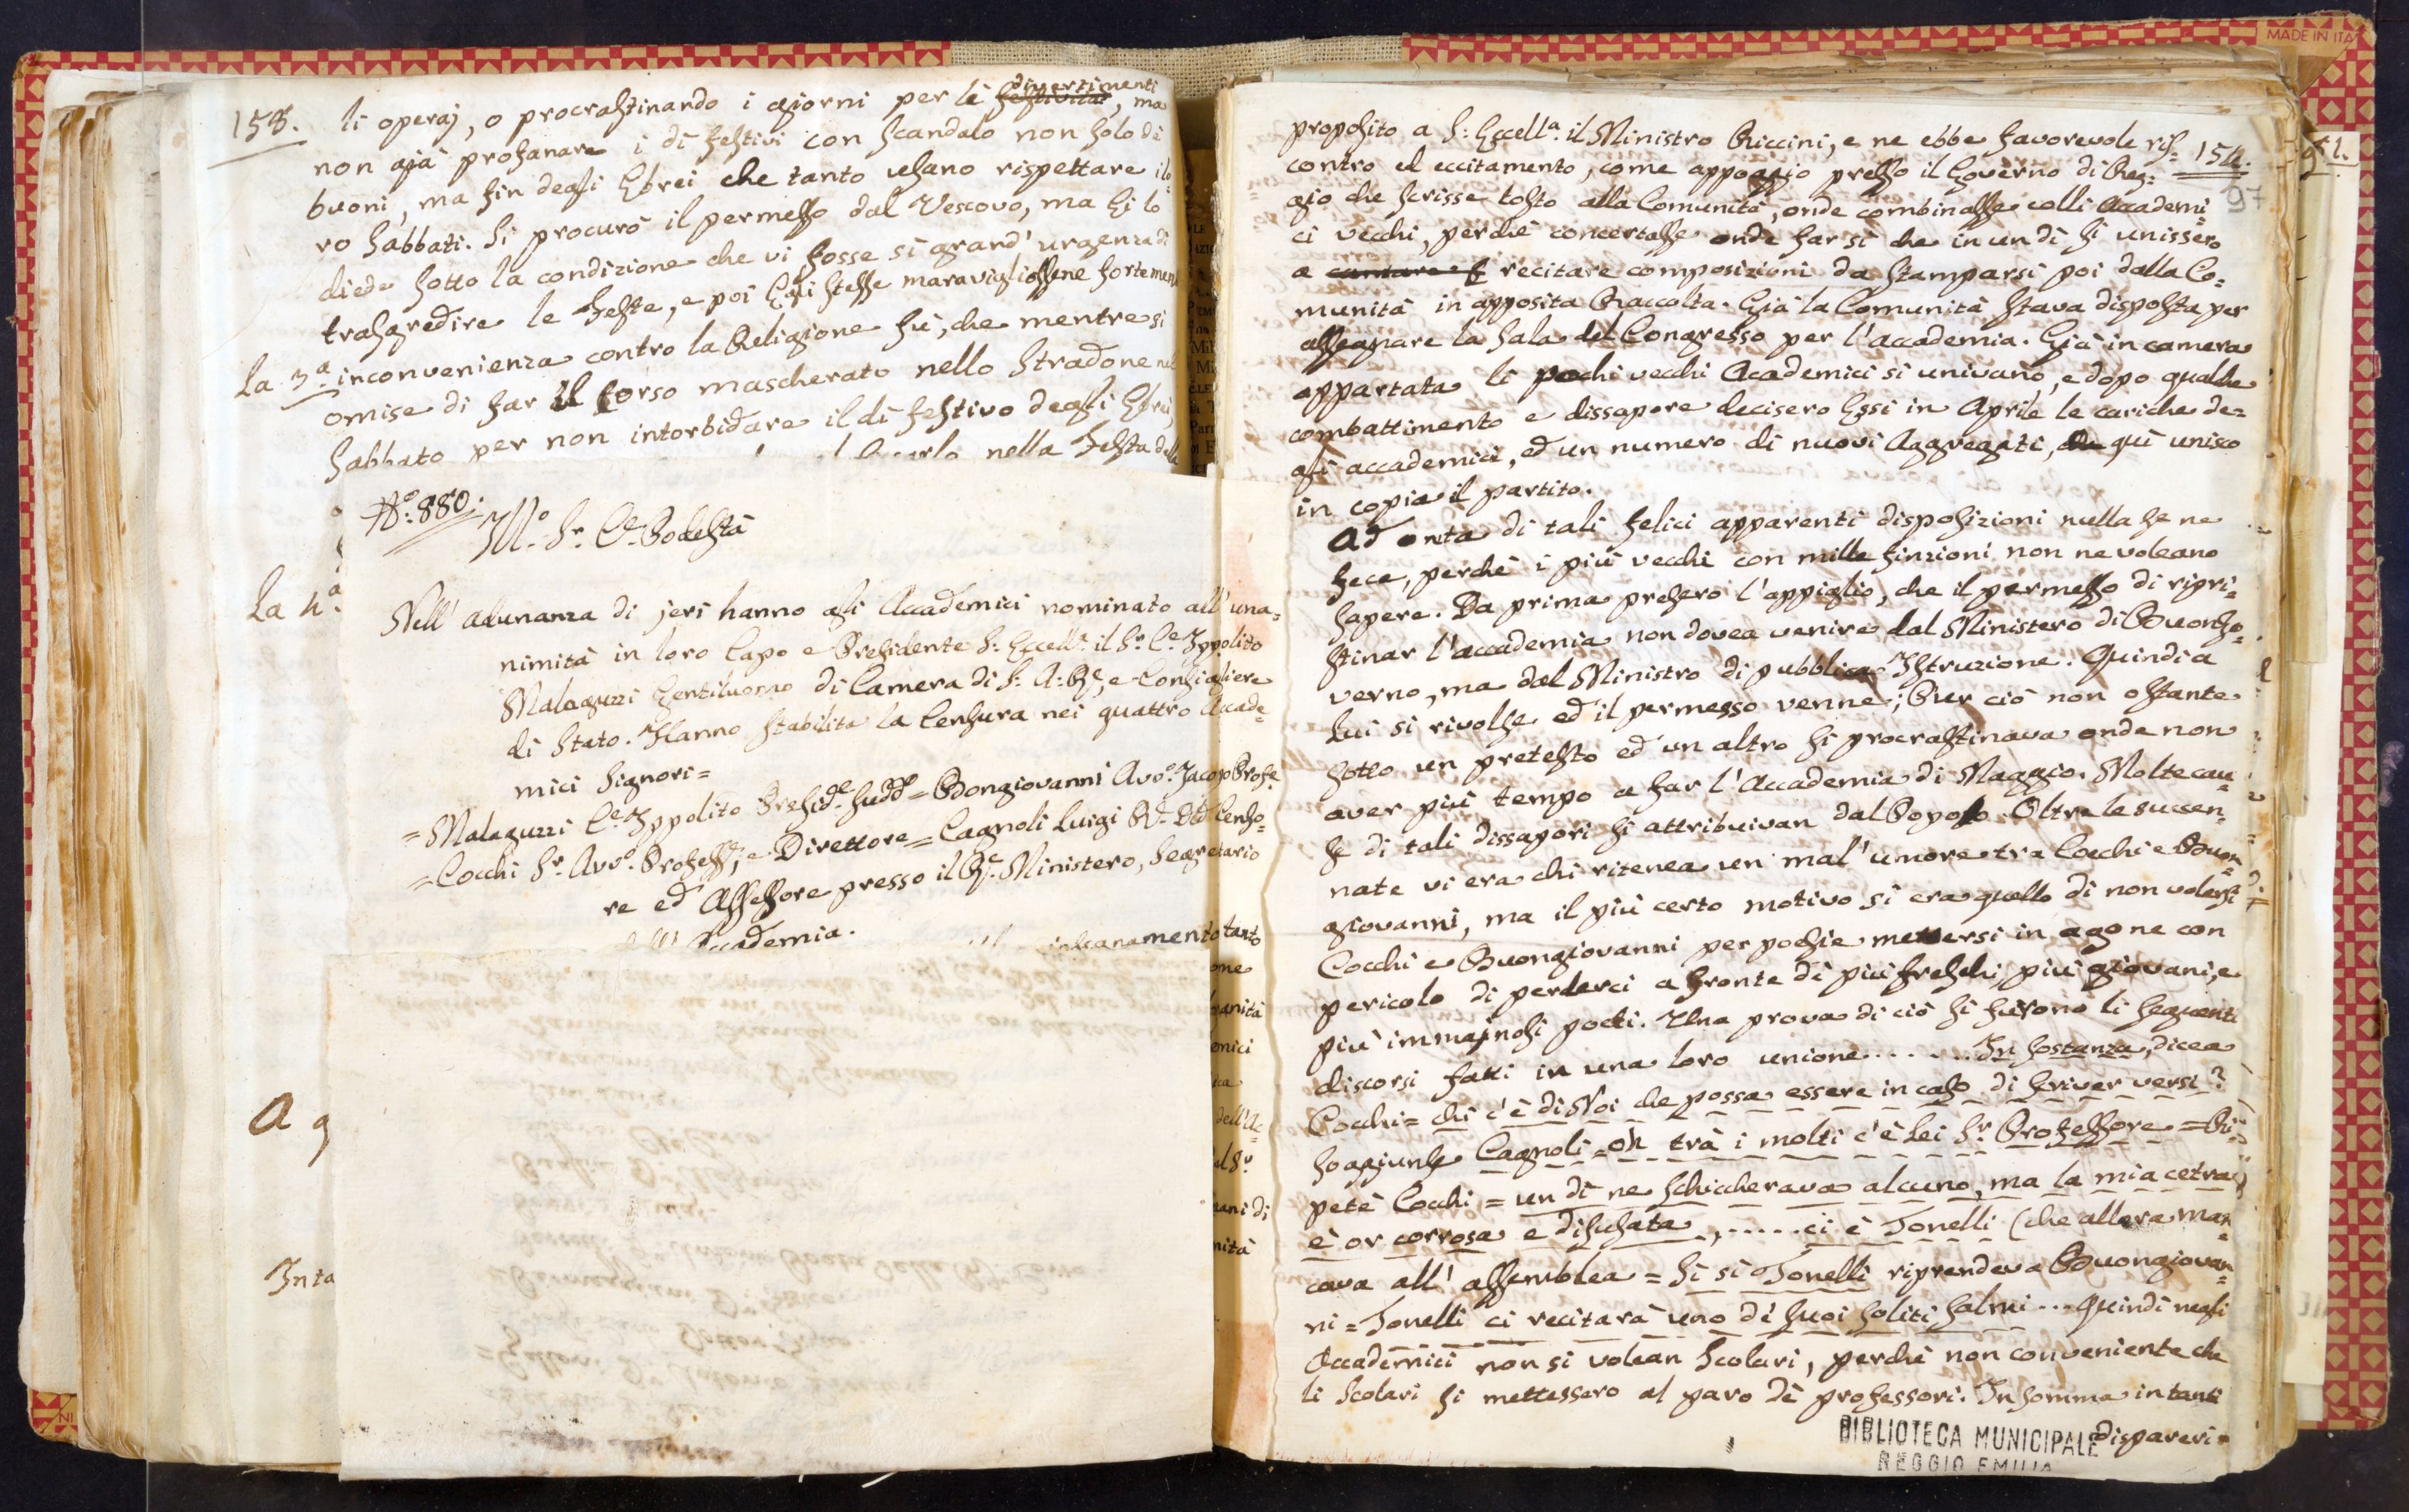 158.
divertimenti
li operaj, o procrastinando i giorni per le festività, ma
non già profanare i dì festivi con scandalo non solo di
buoni, ma fin degli Ebrei che tanto usano rispettare i lo=
ro Sabbati. Si procurò il permesso dal Vescovo, ma Ei lo
diede sotto la condizione che vi fosse sì grand' urgenza di
trasgredire le Feste, e poi Egli stesse maravigliossene fortemen
La 3.a inconvenienza contro la Religione fù, che mentre si
omise di far il Corso mascherato nello Stradone nel
Sabbato per non intorbidare il dì festivo degli Ebrei,
nella Festa della
La 4.a
A g
Inta
N.o 880.
Ill.o Sr. Ce. Podestà
Nell' adunanza di jeri hanno gli Accademici nominato all' una=
nimità in loro Capo e Presidente S: Eccell.a il Sr. Ce. Ippolito
Malaguzzi Gentiluomo di Camera di S: A: Re., e Consigliere
di Stato. Hanno stabilita la Censura nei quattro Accade=
mici Signori=
=Malaguzzi Ce. Ippolito Preside. sudd.o = Bongiovanni Avvo. Jacopo Profe.
=Cocchi Sr. Avvo. Profess.e, e Direttore = Cagnoli Luigi Censo=
re ed Assessore presso il Re. Ministero, Segretario
Accademia.
tanto
one
anità
emici
ica
dell'Ac=
al Sr.
ani di
nità
154.
97
proposito a S: Eccell.a il Ministro Riccini, e ne ebbe favorevole ris=
contro ed eccitamento, come appoggio presso il Governo di Reg=
gio che scrisse tosto alla Comunità, onde combinasse colli Accademi=
ci vecchi, perchè concertasse onde far sì che in un dì si unissero
a cantare e recitare composizioni da stamparsi poi dalla Co=
munità in apposita Raccolta. Già la Comunità stava disposta per
assegnare la Sala del Congresso per l'accademia. Già in camera
appartata li pochi vecchi Academici si univano, e dopo qualche
combattimento e dissapore decisero Essi in Aprile le cariche de=
gli accademici, ed un numero di nuovi Aggregati, che quì unisco
in copia il partito.
Ad onta di tali felici apparenti disposizioni nulla se ne
fece, perchè i più vecchi con mille finzioni non ne voleano
sapere. Da prima presero l'appiglio, che il permesso di ripri=
stinar l'accademia non dovea venire dal Ministero di Buongo=
verno, ma dal Ministro di pubblica Istruzione. Quindi a
Lui si rivolse ed il permesso venne; Pur ciò non ostante
sotto un pretesto ed un altro si procrastinava onde non
aver più tempo a far l'Accademia di Maggio. Molte cau=
se di tali dissapori si attribuivan dal Popolo. Oltre le accen=
nate vi era chi ritenea un mal' umore tra Cocchi e Buon=
giovanni, ma il più certo motivo si era quello di non volersi
Cocchi e Buongiovanni per poesie mettersi in agone con
pericolo di perderci a fronte di più freschi, più giovani, e
più immaginosi poeti. Una prova di ciò si furono li seguenti
discorsi fatti in una loro unione....... In sostanza, dicea
Cocchi = chi c'è di Noi che possa essere in caso di scriver versi?
Soggiunse Cagnoli = oh trà i molti c'è Lei Sr. Professore = Ri=
petè Cocchi = un dì ne schiccherava alcuno, ma la mia cetra
è or corrosa e disusata,..... ci è Tonelli (che allora man=
cava all' assemblea = Sì sì Tonelli riprendeva Buongiovan=
ni = Tonelli ci recitarà uno di suoi soliti salmi... Quindi negli
Accademici non si volean Scolari, perchè non conveniente che
li Scolari si mettessero al paro dè professori. In somma in tanti
dispareri=
BIBLIOTECA MUNICIPALE
REGGIO EMILIA
MADE IN ITA